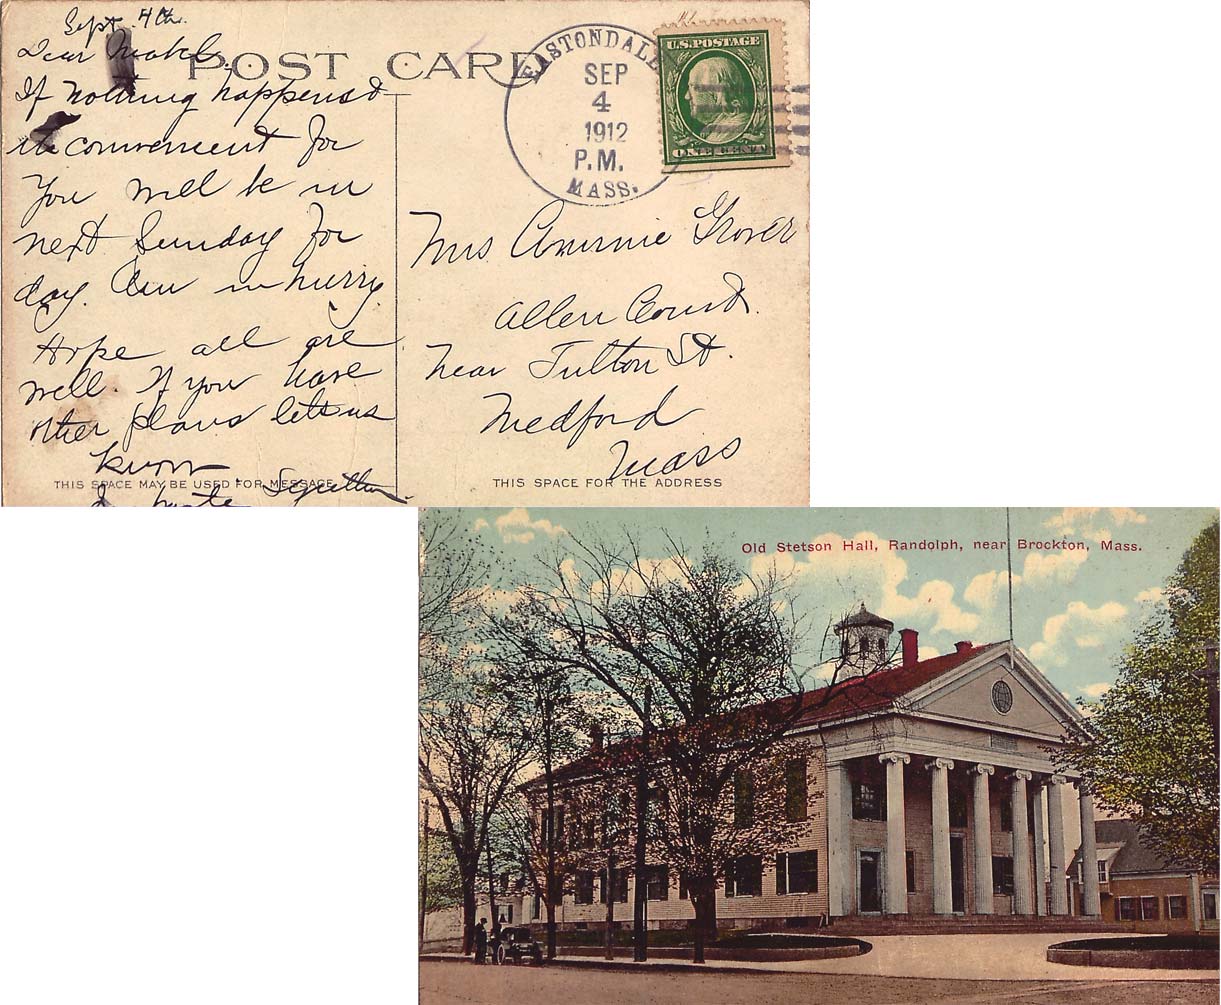 Sept. 4th.
Dear Mable.
POST CARD
If nothing happens &
its convenient for
you will be in
next Sunday for
day. Am in hurry.
Hope all are
well. If you have
other plans lets us
know
In haste
THIS SPACE MAY BE USED FOR MESSAGE
EASTONDALE
SEP
4
1912
P.M.
MASS.
U.S. POSTAGE
ONE CENT
Mrs. Ammie Grover
Allen Court.
Near Fulton St.
Medford
Mass
THIS SPACE FOR THE ADDRESS
Old Stetson Hall, Randolph, near Brockton, Mass.